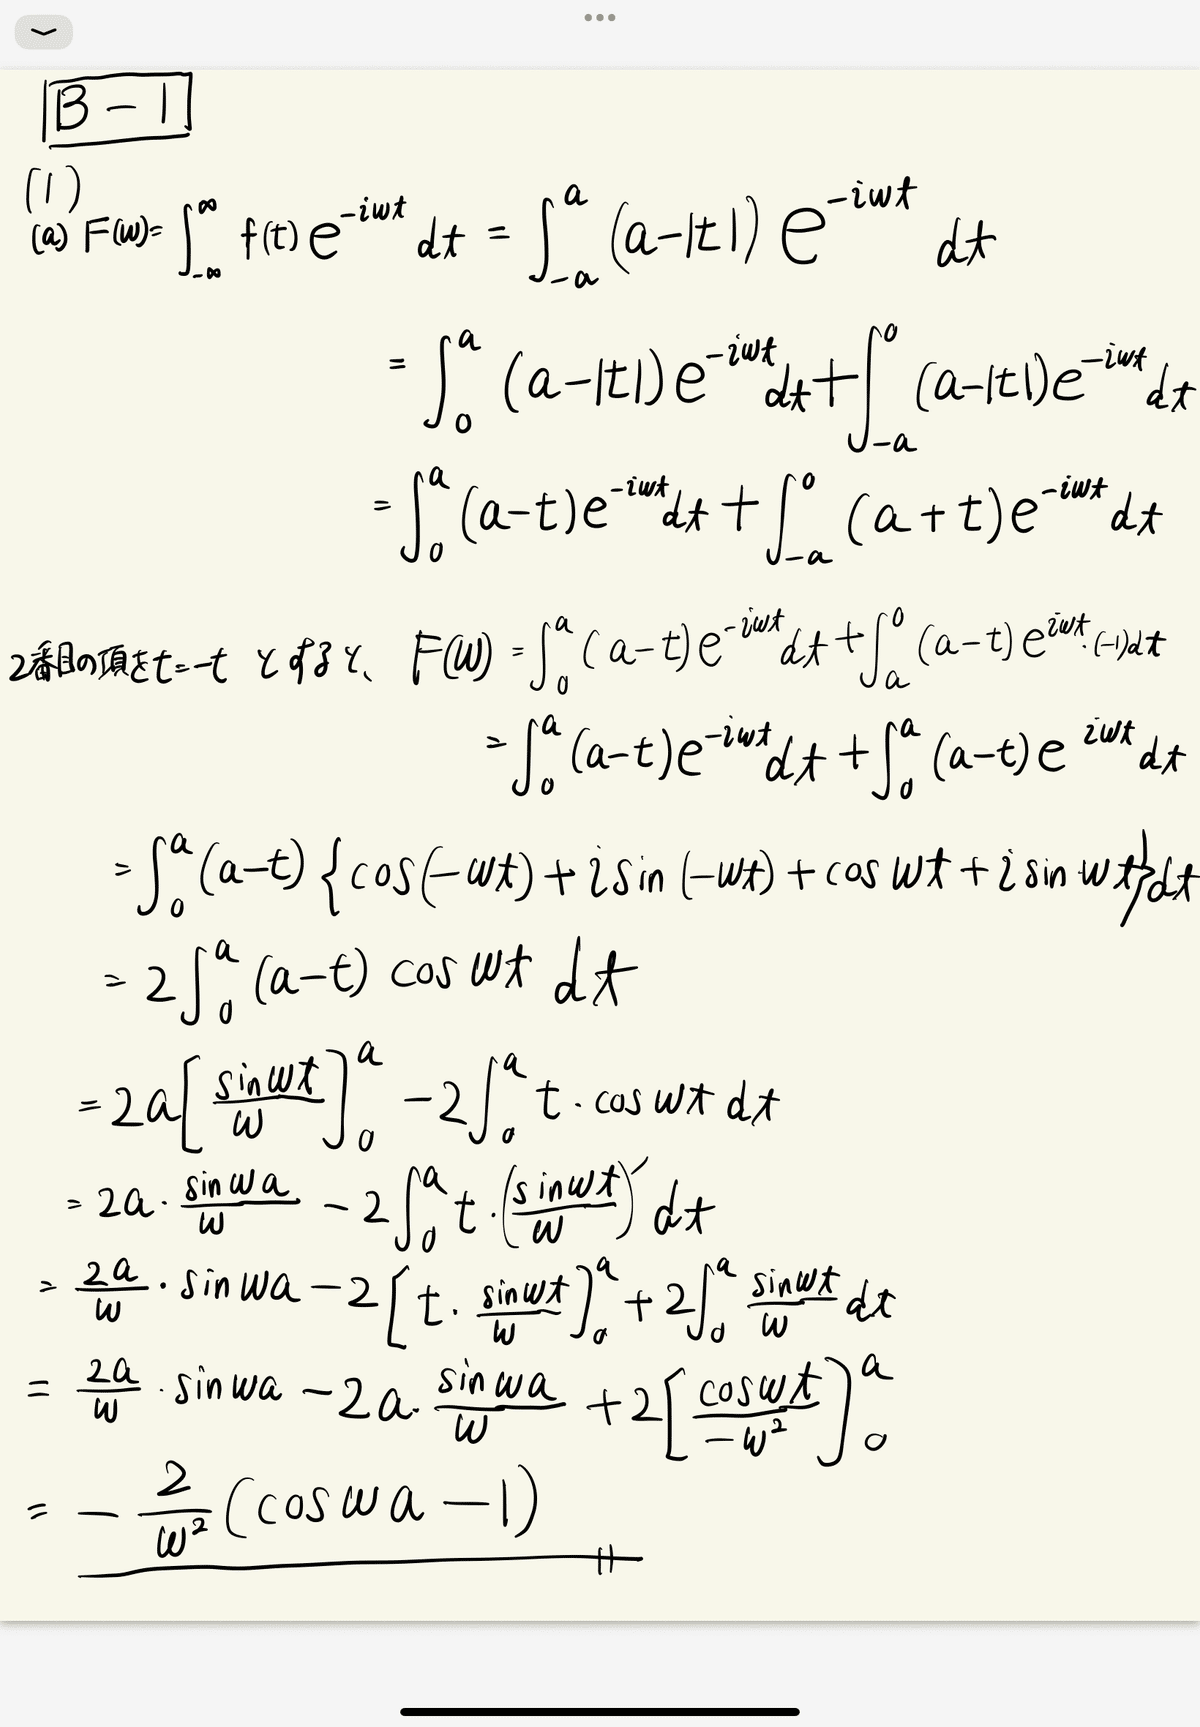 B-1
(1)
(a) F(w)= ∫_{-∞}^{∞} f(t) e^{-iwt} dt = ∫_{-a}^{a} (a-|t|) e^{-iwt} dt
= ∫_{0}^{a} (a-|t|) e^{-iwt} dt + ∫_{-a}^{0} (a-|t|) e^{-iwt} dt
= ∫_{0}^{a} (a-t) e^{-iwt} dt + ∫_{-a}^{0} (a+t) e^{-iwt} dt
2番目の項をt=-t とすると、 F(w) = ∫_{0}^{a} (a-t) e^{-iwt} dt + ∫_{a}^{0} (a-t) e^{iwt}·(-1)dt
= ∫_{0}^{a} (a-t) e^{-iwt} dt + ∫_{0}^{a} (a-t) e^{iwt} dt
= ∫_{0}^{a} (a-t) {cos(-wt) + i sin(-wt) + cos wt + i sin wt} dt
= 2∫_{0}^{a} (a-t) cos wt dt
= 2a[sin wt / w]_{0}^{a} - 2∫_{0}^{a} t · cos wt dt
= 2a · sin wa / w - 2∫_{0}^{a} t · (sin wt / w)′ dt
= 2a/w · sin wa - 2[t · sin wt / w]_{0}^{a} + 2∫_{0}^{a} sin wt / w dt
= 2a/w · sin wa - 2a · sin wa / w + 2[cos wt / -w²]_{0}^{a}
= - 2/w² (cos wa - 1)